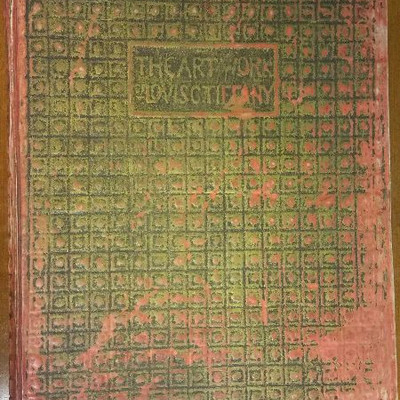 THE ART WORK
OF LOVIS C. TIFFANY